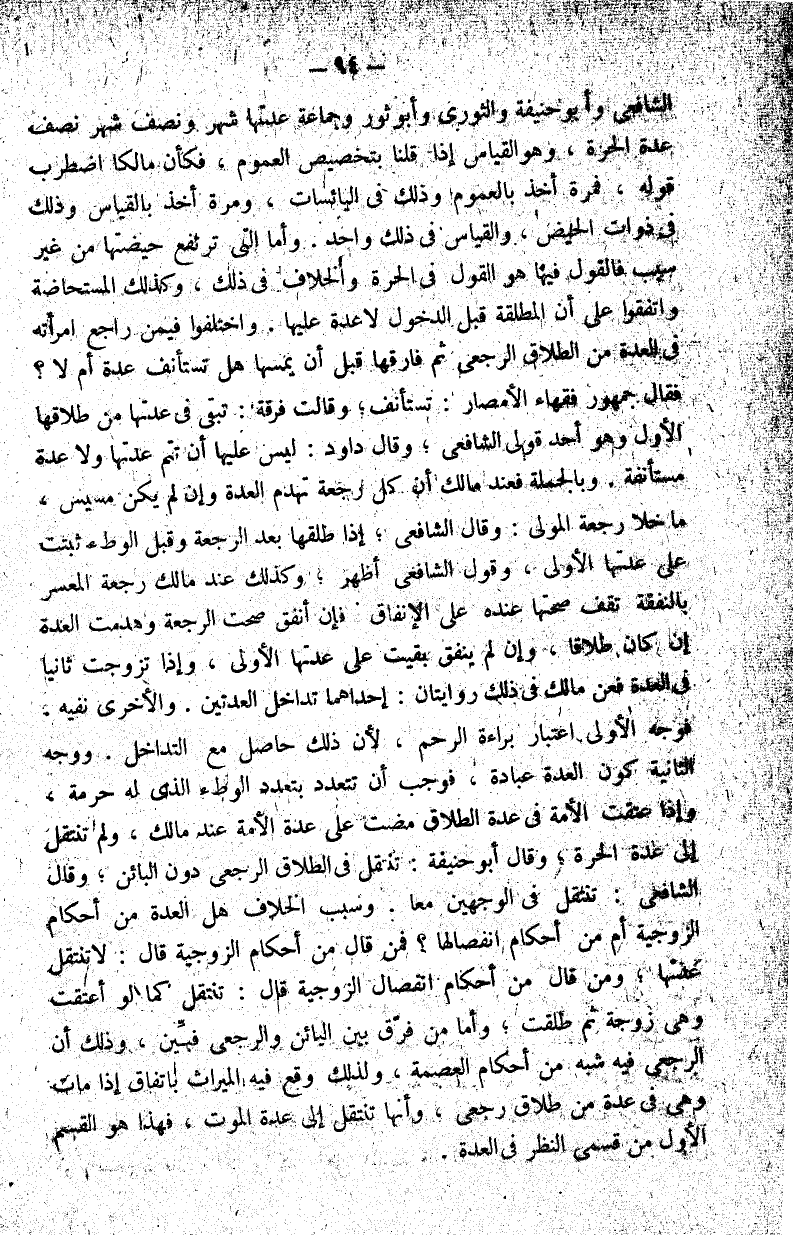 — ٩٤ —
الشافعى وأبوحنيفة والثورى وأبوثور وجماعة عدتها شهر ونصف شهر نصف
عدة الحرة ، وهوالقياس إذا قلنا بتخصيص العموم ، فكأن مالكا اضطرب
قوله ، فمرة أخذ بالعموم وذلك فى اليائسات ، ومرة أخذ بالقياس وذلك
فى ذوات الحيض ، والقياس فى ذلك واحد . وأما التى ترتفع حيضتها من غير
سبب فالقول فيها هو القول فى الحرة والخلاف فى ذلك ، وكذلك المستحاضة
واتفقوا على أن المطلقة قبل الدخول لاعدة عليها . واختلفوا فيمن راجع امرأته
فى العدة من الطلاق الرجعى ثم فارقها قبل أن يمسها هل تستأنف عدة أم لا ؟
فقال جمهور فقهاء الأمصار : تستأنف ؛ وقالت فرقة : تبقى فى عدتها من طلاقها
الأول وهو أحد قولى الشافعى ؛ وقال داود : ليس عليها أن تتم عدتها ولا عدة
مستأنفة . وبالجملة فعند مالك أن كل رجعة تهدم العدة وإن لم يكن مسيس ،
ماخلا رجعة المولى : وقال الشافعى ؛ إذا طلقها بعد الرجعة وقبل الوطء ثبتت
على عدتها الأولى ، وقول الشافعى أظهر ؛ وكذلك عند مالك رجعة المعسر
بالنفقة تقف صحتها عنده على الإنفاق فإن أنفق صحت الرجعة وهدمت العدة
إن كان طلاقا ، وإن لم ينفق بقيت على عدتها الأولى ، وإذا تزوجت ثانيا
فى العدة فعن مالك فى ذلك روايتان : إحداهما تداخل العدتين . والأخرى نفيه .
فوجه الأولى اعتبار براءة الرحم ، لأن ذلك حاصل مع التداخل . ووجه
الثانية كون العدة عبادة ، فوجب أن تتعدد بتعدد الوطء الذى له حرمة ،
وإذا عتقت الأمة فى عدة الطلاق مضت على عدة الأمة عند مالك ، ولم تنتقل
إلى عدة الحرة ؛ وقال أبوحنيفة : تنتقل فى الطلاق الرجعى دون البائن ؛ وقال
الشافعى : تنتقل فى الوجهين معا . وسبب الخلاف هل العدة من أحكام
الزوجية أم من أحكام انفصالها ؟ فمن قال من أحكام الزوجية قال : لاتنتقل
عدتها ؛ ومن قال من أحكام انفصال الزوجية قال : تنتقل كما لو أعتقت
وهى زوجة ثم طلقت ؛ وأما من فرّق بين البائن والرجعى فبيّن ، وذلك أن
الرجعى فيه شبه من أحكام العصمة ، ولذلك وقع فيه الميراث باتفاق إذا مات
وهى فى عدة من طلاق رجعى ، وأنها تنتقل إلى عدة الموت ، فهذا هو القسم
الأول من قسمى النظر فى العدة .